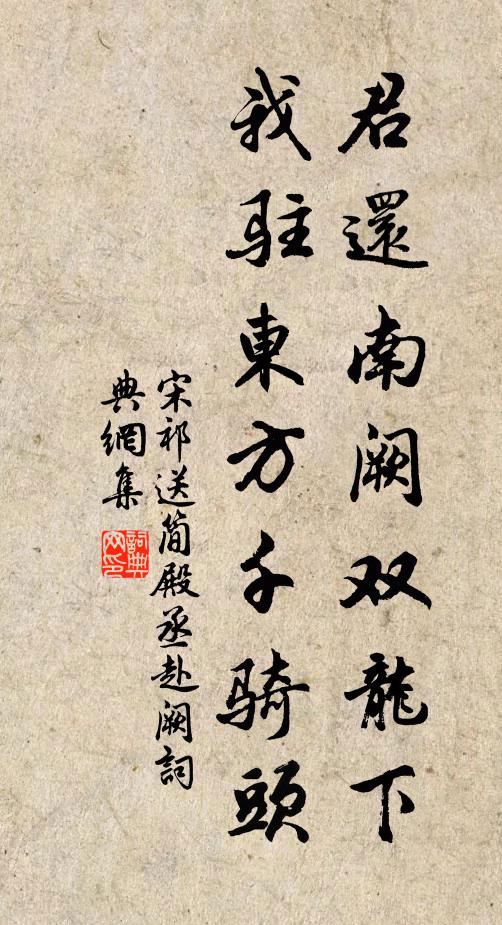 君還南阙双龍下
我驻東方千骑頭
宋祁送简殿丞赴阙詞
典網集
詞典网印